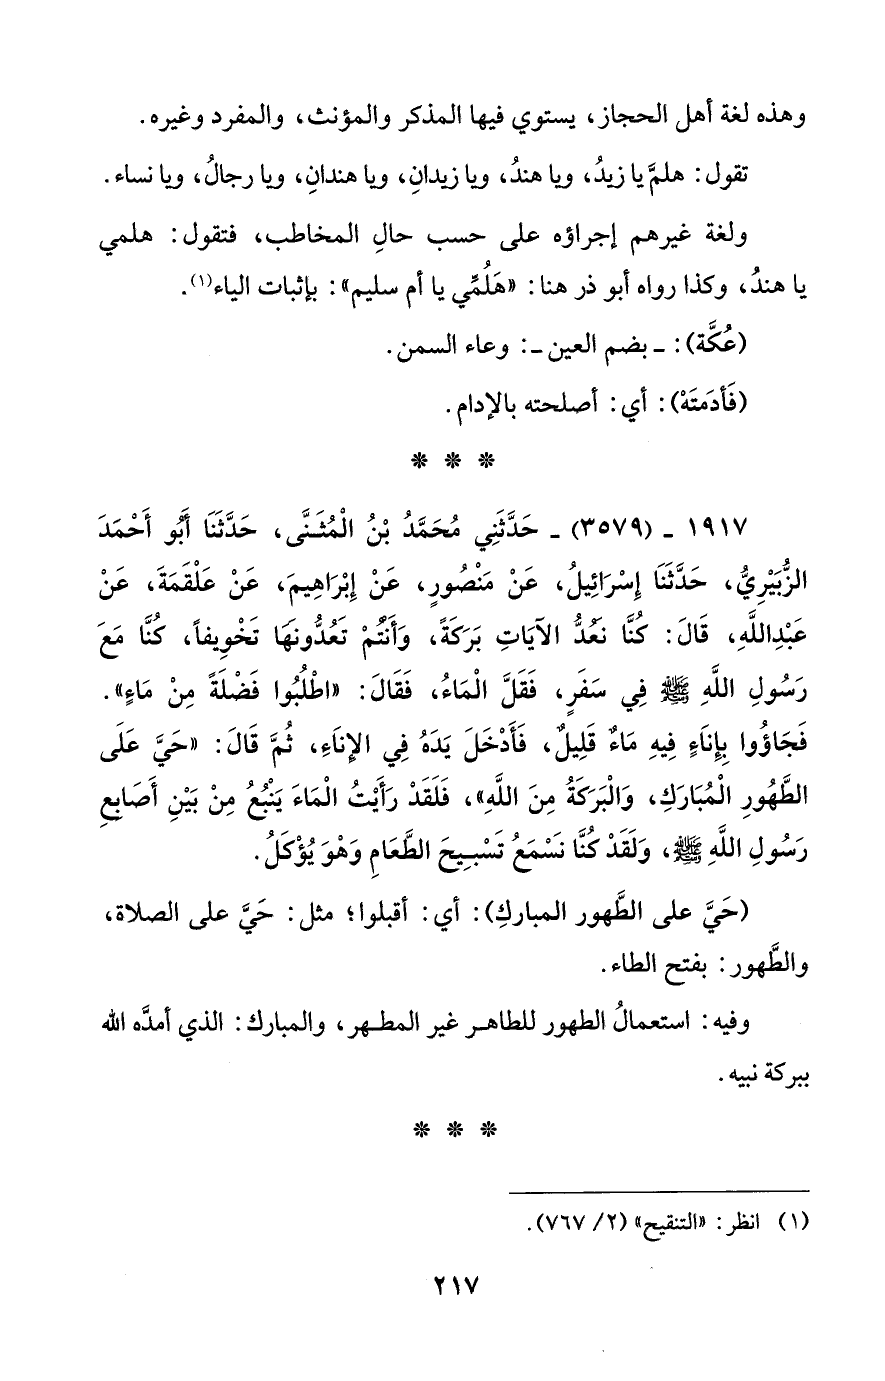 وهذه لغة أهل الحجاز، يستوي فيها المذكر والمؤنث، والمفرد وغيره.
تقول: هلمَّ يا زيدُ، ويا هندُ، ويا زيدانِ، ويا هندانِ، ويا رجالُ، ويا نساء.
ولغة غيرهم إجراؤه على حسب حالِ المخاطب، فتقول: هلمي
يا هندُ، وكذا رواه أبو ذر هنا: «هَلُمِّي يا أم سليم»: بإثبات الياء(١).
(عُكَّة): ـ بضم العين ـ: وعاء السمن.
(فَأَدَمَتَهْ): أي: أصلحته بالإدام.
* * *
١٩١٧ ـ (٣٥٧٩) ـ حَدَّثَنِي مُحَمَّدُ بْنُ الْمُثَنَّى، حَدَّثَنَا أَبُو أَحْمَدَ
الزُّبَيْرِيُّ، حَدَّثَنَا إِسْرَائِيلُ، عَنْ مَنْصُورٍ، عَنْ إِبْرَاهِيمَ، عَنْ عَلْقَمَةَ، عَنْ
عَبْدِاللَّهِ، قَالَ: كُنَّا نَعُدُّ الآيَاتِ بَرَكَةً، وَأَنْتُمْ تَعُدُّونَهَا تَخْوِيفاً، كُنَّا مَعَ
رَسُولِ اللَّهِ ﷺ فِي سَفَرٍ، فَقَلَّ الْمَاءُ، فَقَالَ: «اطْلُبُوا فَضْلَةً مِنْ مَاءٍ».
فَجَاؤُوا بِإِنَاءٍ فِيهِ مَاءٌ قَلِيلٌ، فَأَدْخَلَ يَدَهُ فِي الإِنَاءِ، ثُمَّ قَالَ: «حَيَّ عَلَى
الطَّهُورِ الْمُبَارَكِ، وَالْبَرَكَةُ مِنَ اللَّهِ»، فَلَقَدْ رَأَيْتُ الْمَاءَ يَنْبُعُ مِنْ بَيْنِ أَصَابِعِ
رَسُولِ اللَّهِ ﷺ، وَلَقَدْ كُنَّا نَسْمَعُ تَسْبِيحَ الطَّعَامِ وَهْوَ يُؤْكَلُ.
(حَيَّ على الطَّهور المباركِ): أي: أقبلوا؛ مثل: حَيَّ على الصلاة،
والطَّهور: بفتح الطاء.
وفيه: استعمالُ الطهور للطاهر غير المطهر، والمبارك: الذي أمدَّه الله
ببركة نبيه.
* * *
(١) انظر: «التنقيح» (٢/ ٧٦٧).
٢١٧